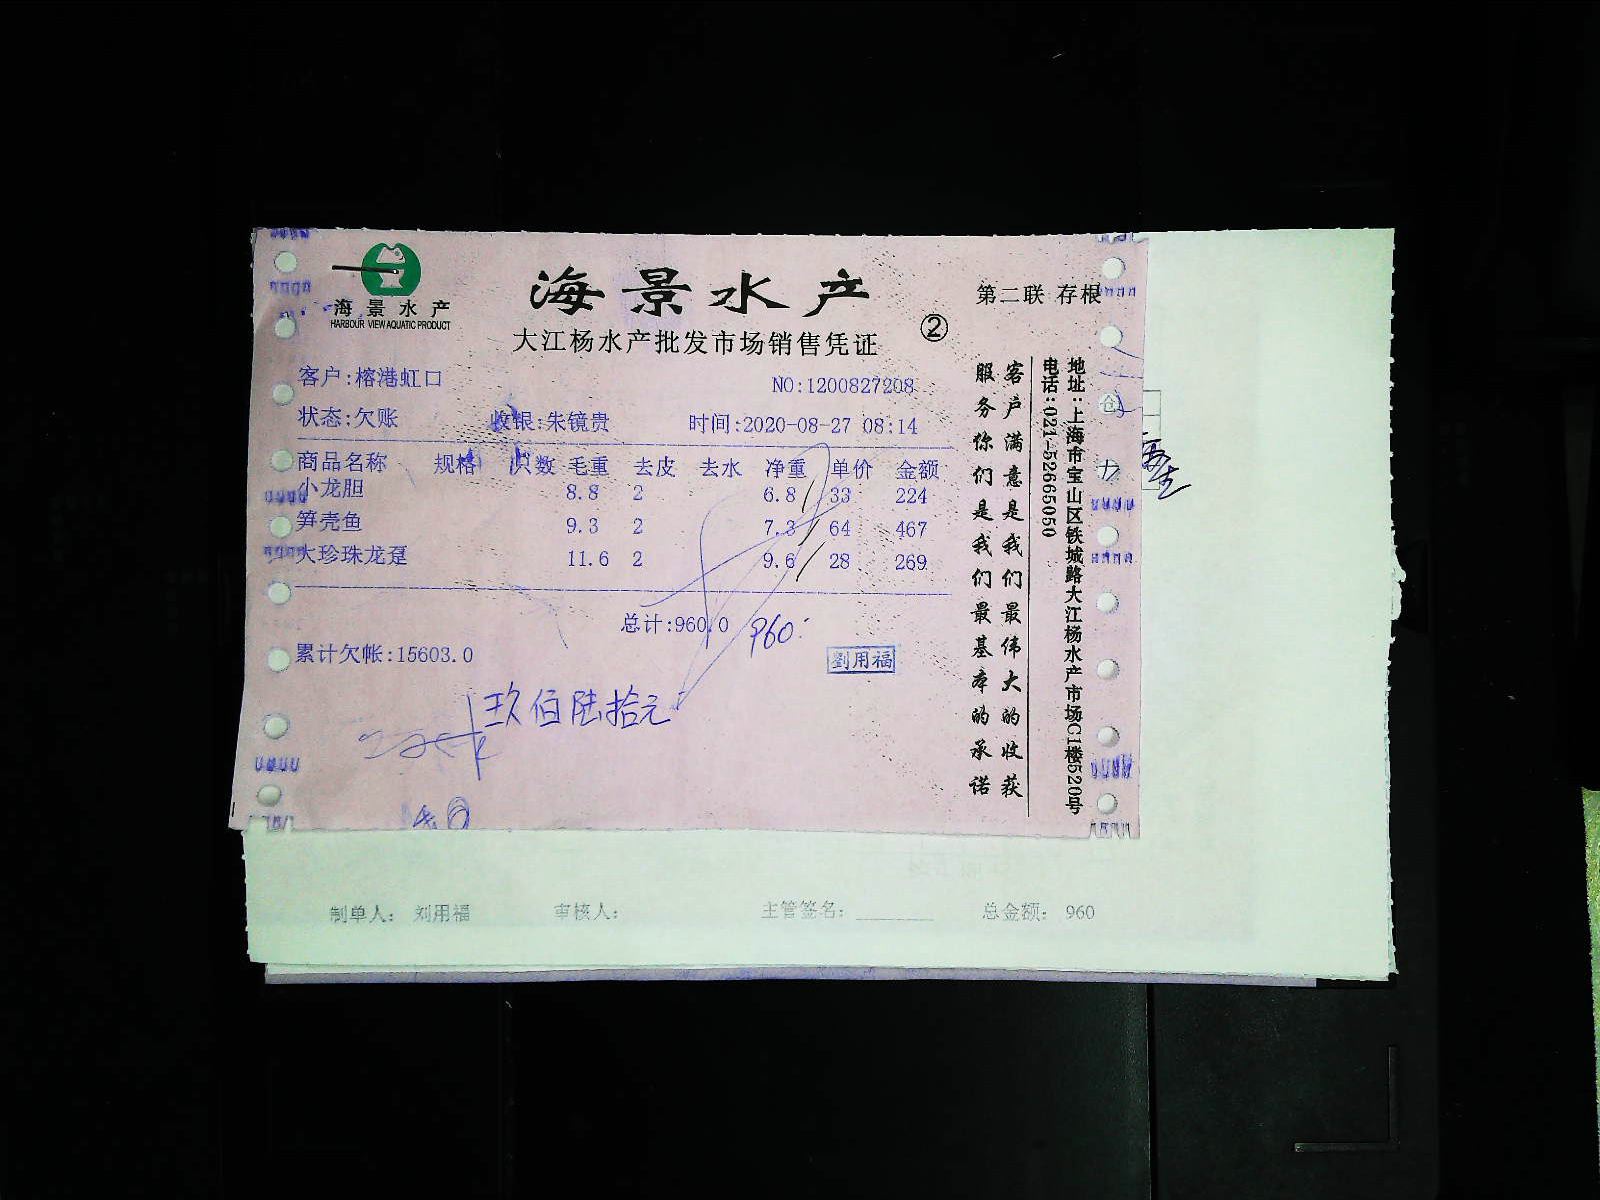 海景水产
HARBOUR VIEW AQUATIC PRODUCT
海景水产
第二联 存根
大江杨水产批发市场销售凭证
②
客户:榕港虹口
NO:1200827208
状态:欠账 收银:朱镜贵 时间:2020-08-27 08:14
商品名称 规格 只数 毛重 去皮 去水 净重 单价 金额
小龙胆 8.8 2 6.8 33 224
笋壳鱼 9.3 2 7.3 64 467
大珍珠龙趸 11.6 2 9.6 28 269
总计:960.0 960
累计欠帐:15603.0
劉用福
玖佰陆拾元
客户满意是我们最伟大的收获
服务你们是我们最基本的承诺
地址:上海市宝山区铁城路大江杨水产市场C1楼520号
电话:021-52665050
仓
制单人: 刘用福 审核人: 主管签名: 总金额: 960